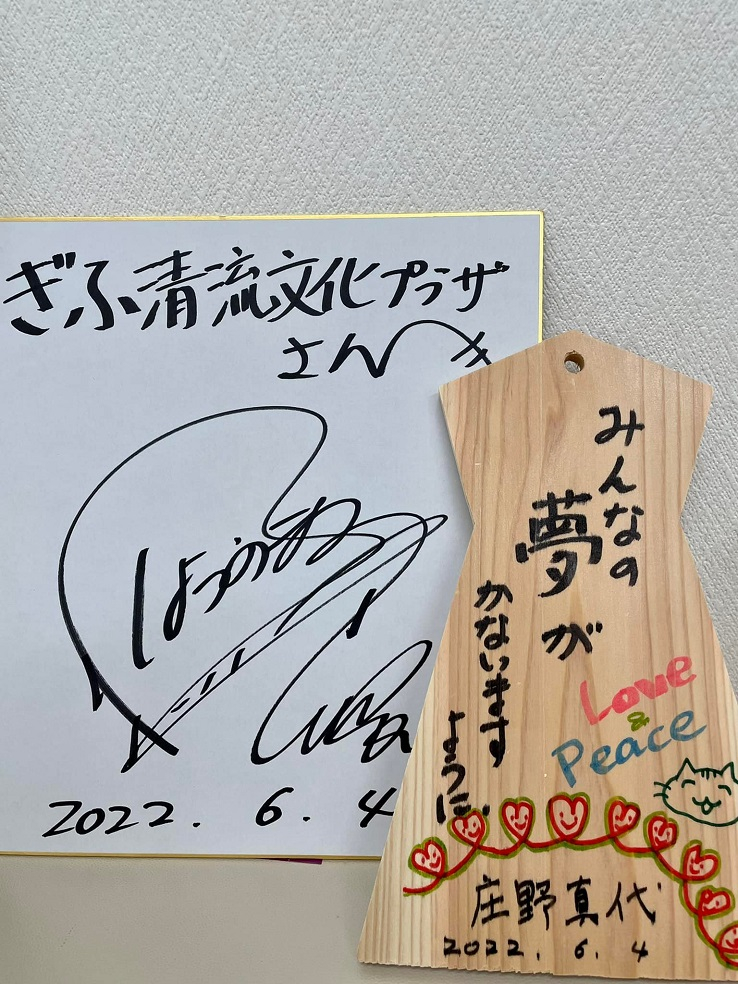 ぎふ清流文化プラザ
さんへ
しょうのまよ
2022. 6. 4
みんなの
夢が
かないます
ように
Love
&
Peace
庄野真代
2022. 6. 4